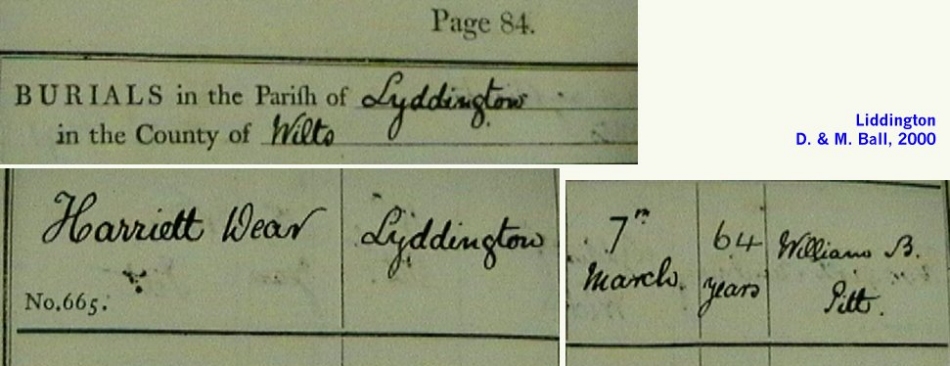 Page 84.
BURIALS in the Pariſh of Lyddington
in the County of Wilts
Liddington
D. & M. Ball, 2000
Harriett Wear
Lyddington
No. 665.
7th
March.
64
years
William B.
Pitt.